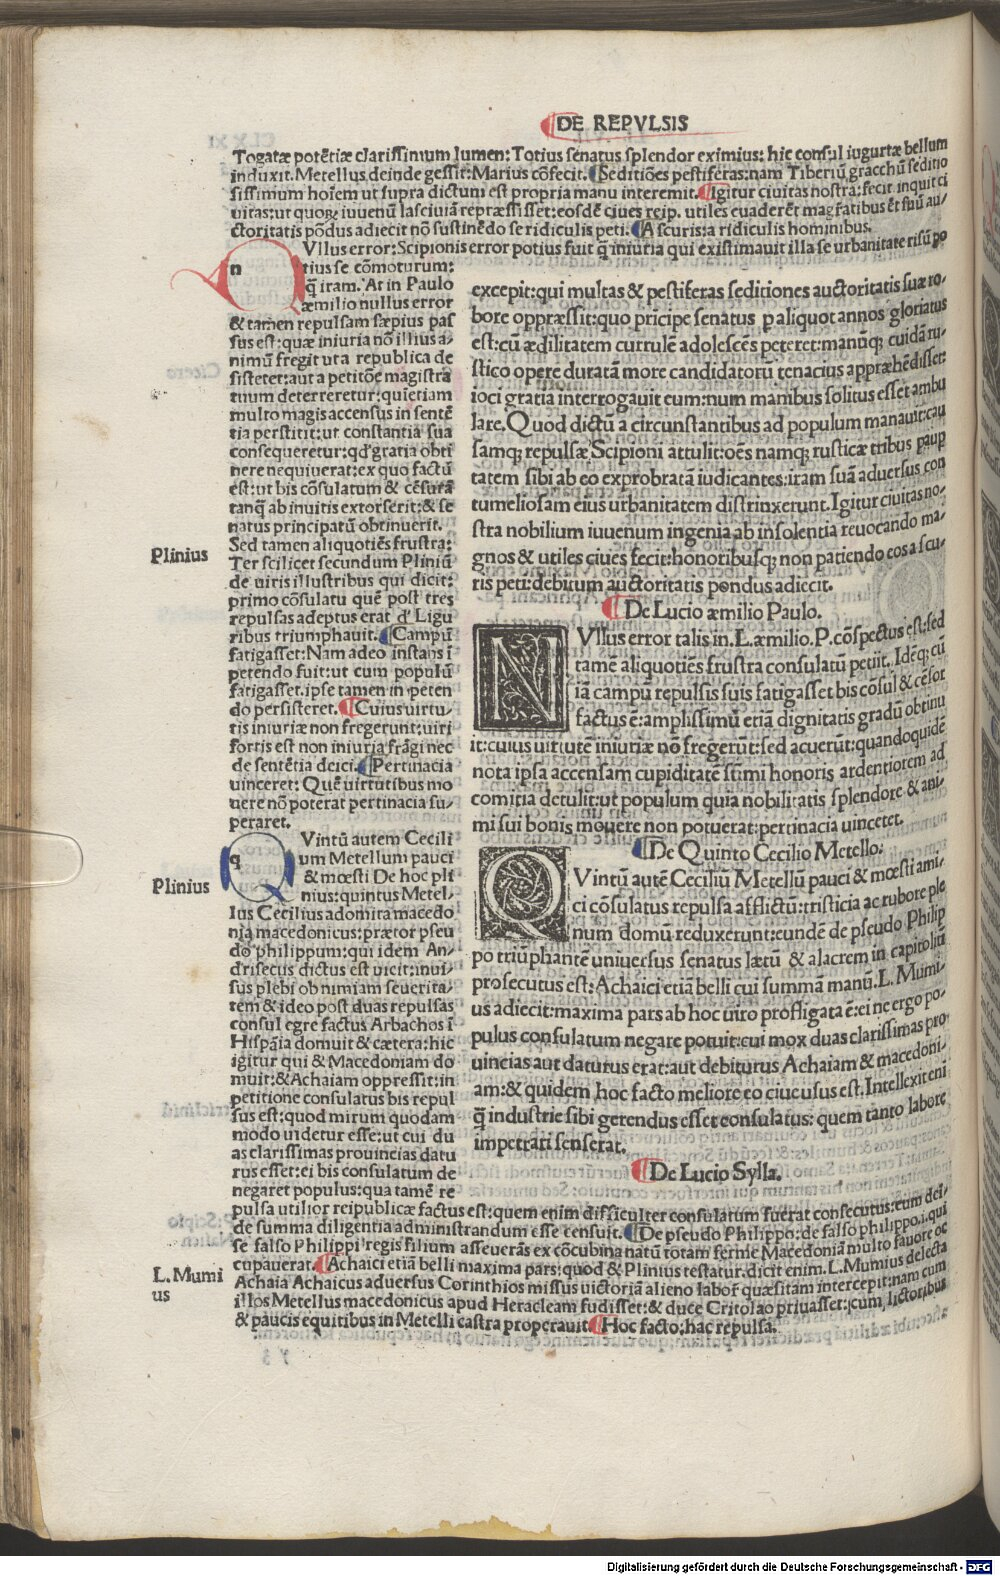 DE REPVLSIS
Togatæ potētiæ clarissimum lumen: Totius senatus splendor eximius: hic consul iugurtæ bellum
induxit. Metellus deinde gessit: Marius cōfecit. Seditiões pestiferas: nam Tiberiū gracchū seditio
sissimum hoīem ut supra dictum est propria manu interemit. Igitur ciuitas nostra: fecit inquit ci
uitas: ut quorꝝ iuuenū lasciuiā repræssisset: eosdē ciues reip. utiles euaderēt magr̄atibus & suū au/
ctoritatis pōdus adiecit nō sustinēdo se ridiculis peti. A scuris: a ridiculis hominibus.
Vllus error: Scipionis error potius fuit q̄ iniuria qui existimauit illa se urbanitate risū po
n
tius se cōmoturum:
q̄ iram. At in Paulo
æmilio nullus error
& tamen repulsam sæpius pas
sus est: quæ iniuria nō illius a/
nimū fregit ut a republica de
sisteret: aut a petitōe magistra
tuum deterreretur: quietiam
multo magis accensus in sentē
tia perstitit: ut constantia sua
consequeretur: qd̄ gratia obti
nere nequiuerat: ex quo factū
est: ut bis cōsulatum & cēsurā
tanq̄ ab inuitis extorserit: & se
natus principatū obtinuerit.
Sed tamen aliquotiēs frustra:
Ter scilicet secundum Pliniū
de uiris illustribus qui dicit:
primo cōsulatu quē post tres
repulsas adeptus erat d' Ligu
ribus triumphauit. Campū
fatigasset: Nam adeo instans ī
petendo fuit: ut cum populū
fatigasset. ipse tamen in peten
do persisteret. Cuius uirtu/
tis iniuriæ non fregerunt: uiri
fortis est non iniuria frāgi nec
de sentētia deici. Pertinacia
uinceret: Quē uirtutibus mo
uere nō poterat pertinacia su/
peraret.
Plinius
Vintū autem Cecili
q
um Metellum pauci
& mœsti De hoc pli
nius: quintus Metel/
lus Cecilius adomita macedo
nia macedonicus: prætor pseu
do philippum: qui idem An/
driscus dictus est uicit: inui/
sus plebi ob nimiam seuerita/
tem & ideo post duas repulsas
consul egre factus Arbachos ī
Hispāia domuit & cætera: hic
igitur qui & Macedoniam do
muit: & Achaiam oppressit: in
petitione consulatus bis repul
sus est: quod mirum quodam
modo uidetur esse: ut cui du
as clarissimas prouincias datu
rus esset: ei bis consulatum de
negaret populus: qua tamē re
Plinius
excepit: qui multas & pestiferas seditiones auctoritatis suæ ro/
bore oppræssit: quo prīcipe senatus p aliquot annos gloriatus
est: cū ædilitatem currulē adolescēs peteret: manūq; cuidā ru/
stico opere duratā more candidatorū tenacius appræhēdisset:
ioci gratia interrogauit eum: num manibus solitus esset ambu
lare. Quod dictū a circunstantibus ad populum manauit: cau
samq; repulsæ Scipioni attulit: oēs namq; rusticæ tribus paup
tatem sibi ab eo exprobratā iudicantes: iram suā aduersus con
tumeliosam eius urbanitatem distrinxerunt. Igitur ciuitas no/
stra nobilium iuuenum ingenia ab insolentia reuocando ma/
gnos & utiles ciues fecit: honoribusq; non patiendo eos a scu/
ris peti: debitum auctoritatis pondus adiecit.
De Lucio æmilio Paulo.
NVllus error talis in. L. æmilio. P. cōspectus est. sed
tamē aliquotiēs frustra consulatū petiit. Idēq; cū
iā campū repulsis suis fatigasset bis cōsul & cēsor
factus ē: amplissimū etiā dignitatis gradū obtinu
it: cuius uirtutē iniuriæ nō fregerūt: sed acuerūt: quandoquidē
nota ipsa accensam cupiditate sūmi honoris ardentiorem ad
comitia detulit: ut populum quia nobilitatis splendore & ani/
mi sui bonis mouere non potuerat: pertinacia uincetet.
De Quinto Cecilio Metello.
QVintū autē Ceciliū Metellū pauci & mœsti ami/
ci cōsulatus repulsa afflictū: tristicia ac rubore ple
num domū reduxerunt: eundē de pseudo Philip
po triūphantē uniuersus senatus lætū & alacrem in capitoliū
prosecutus est: Achaici etiā belli cui summā manū. L. Mumi/
us adiecit: maxima pars ab hoc uiro profligata ē: ei ne ergo po/
pulus consulatum negare potuit: cui mox duas clarissimas pro/
uincias aut daturus erat: aut debiturus Achaiam & macedoni/
am: & quidem hoc facto meliore eo ciue usus est. Intellexit eni
q̄ industrie sibi gerendus esset consulatus: quem tanto labore
impetrati senserat.
De Lucio Sylla.
pulsa utilior reipublicæ factus est: quem enim difficulter consulatum fuerat consecutus: eum dei/
de summa diligentia administrandum esse censuit. De pseudo Philippo: de falso philippo. i. qui
se falso Philippi regis filium asseuerās ex cōcubina natū totam ferme Macedoniā multo fauore oc
cupauerat. Achaici etiā belli maxima pars: quod & Plinius testatur. dicit enim. L. Mumius delecta
Achaia Achaicus aduersus Corinthios missus uictoriā alieno labor̄ quæsitam intercepit: nam cum
illos Metellus macedonicus apud Heracleam fudisset: & duce Critolao priuasset: cum lictoribus
& paucis equitibus in Metelli castra properauit. Hoc facto: hac repulsa.
L. Mumi
us
Digitalisierung gefördert durch die Deutsche Forschungsgemeinschaft - DFG